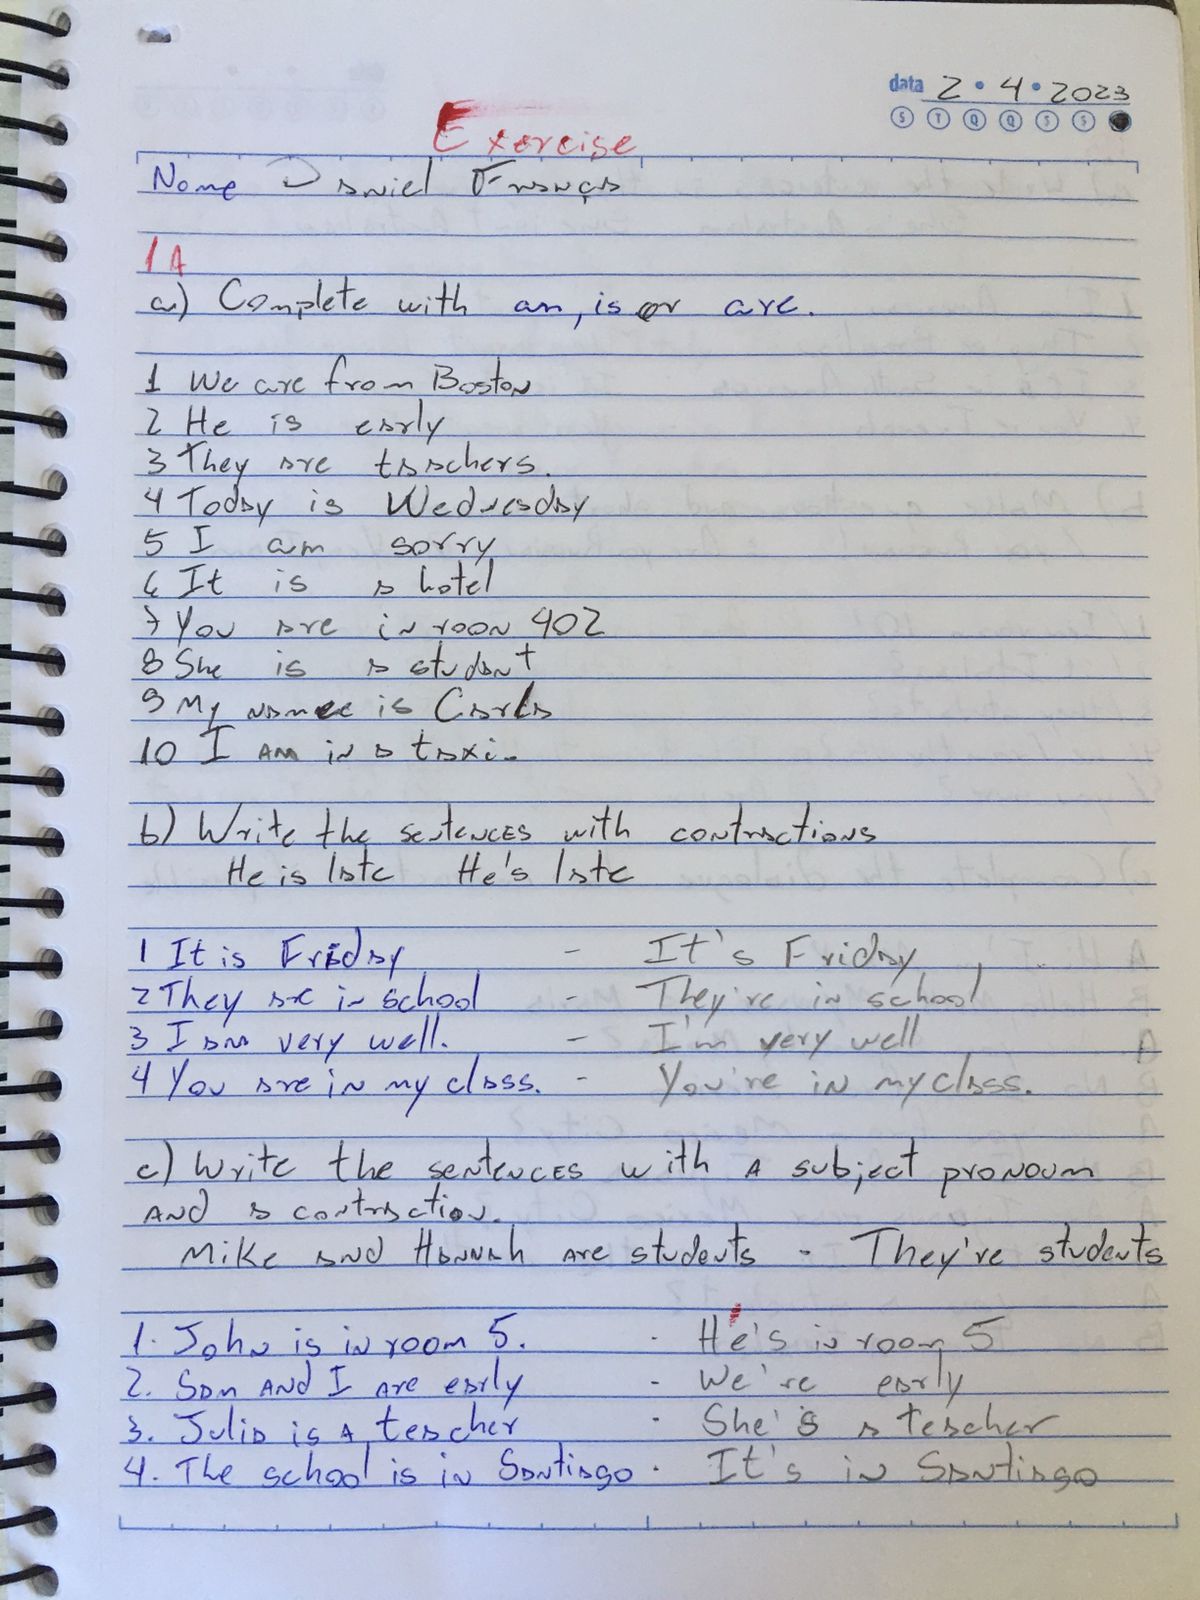 data 2 • 4 • 2023
S T Q Q S S
Exercise
Nome Daniel França
1A
a) Complete with am, is or are.
1 We are from Boston
2 He is early
3 They are teachers.
4 Today is Wednesday
5 I am sorry
6 It is a hotel
7 You are in room 402
8 She is a student
9 My name is Carla
10 I AM in a taxi.
b) Write the sentences with contractions
He is late He's late
1 It is Friday - It's Friday
2 They are in school - They're in school
3 I am very well. - I'm very well
4 You are in my class. - You're in my class.
c) Write the sentences with A subject pronoum
AND a contraction.
Mike and Hannah are students - They're students
1. John is in room 5. - He's in room 5
2. Sam AND I Are early - We're early
3. Julia is A teacher - She's a teacher
4. The school is in Santiago - It's in Santiago